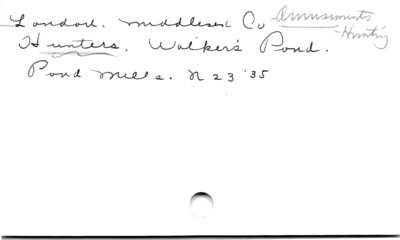 London. Middlesex Co Amusements
-Hunting
Hunters. Walker's Pond.
Pond Mills. N 23 '35